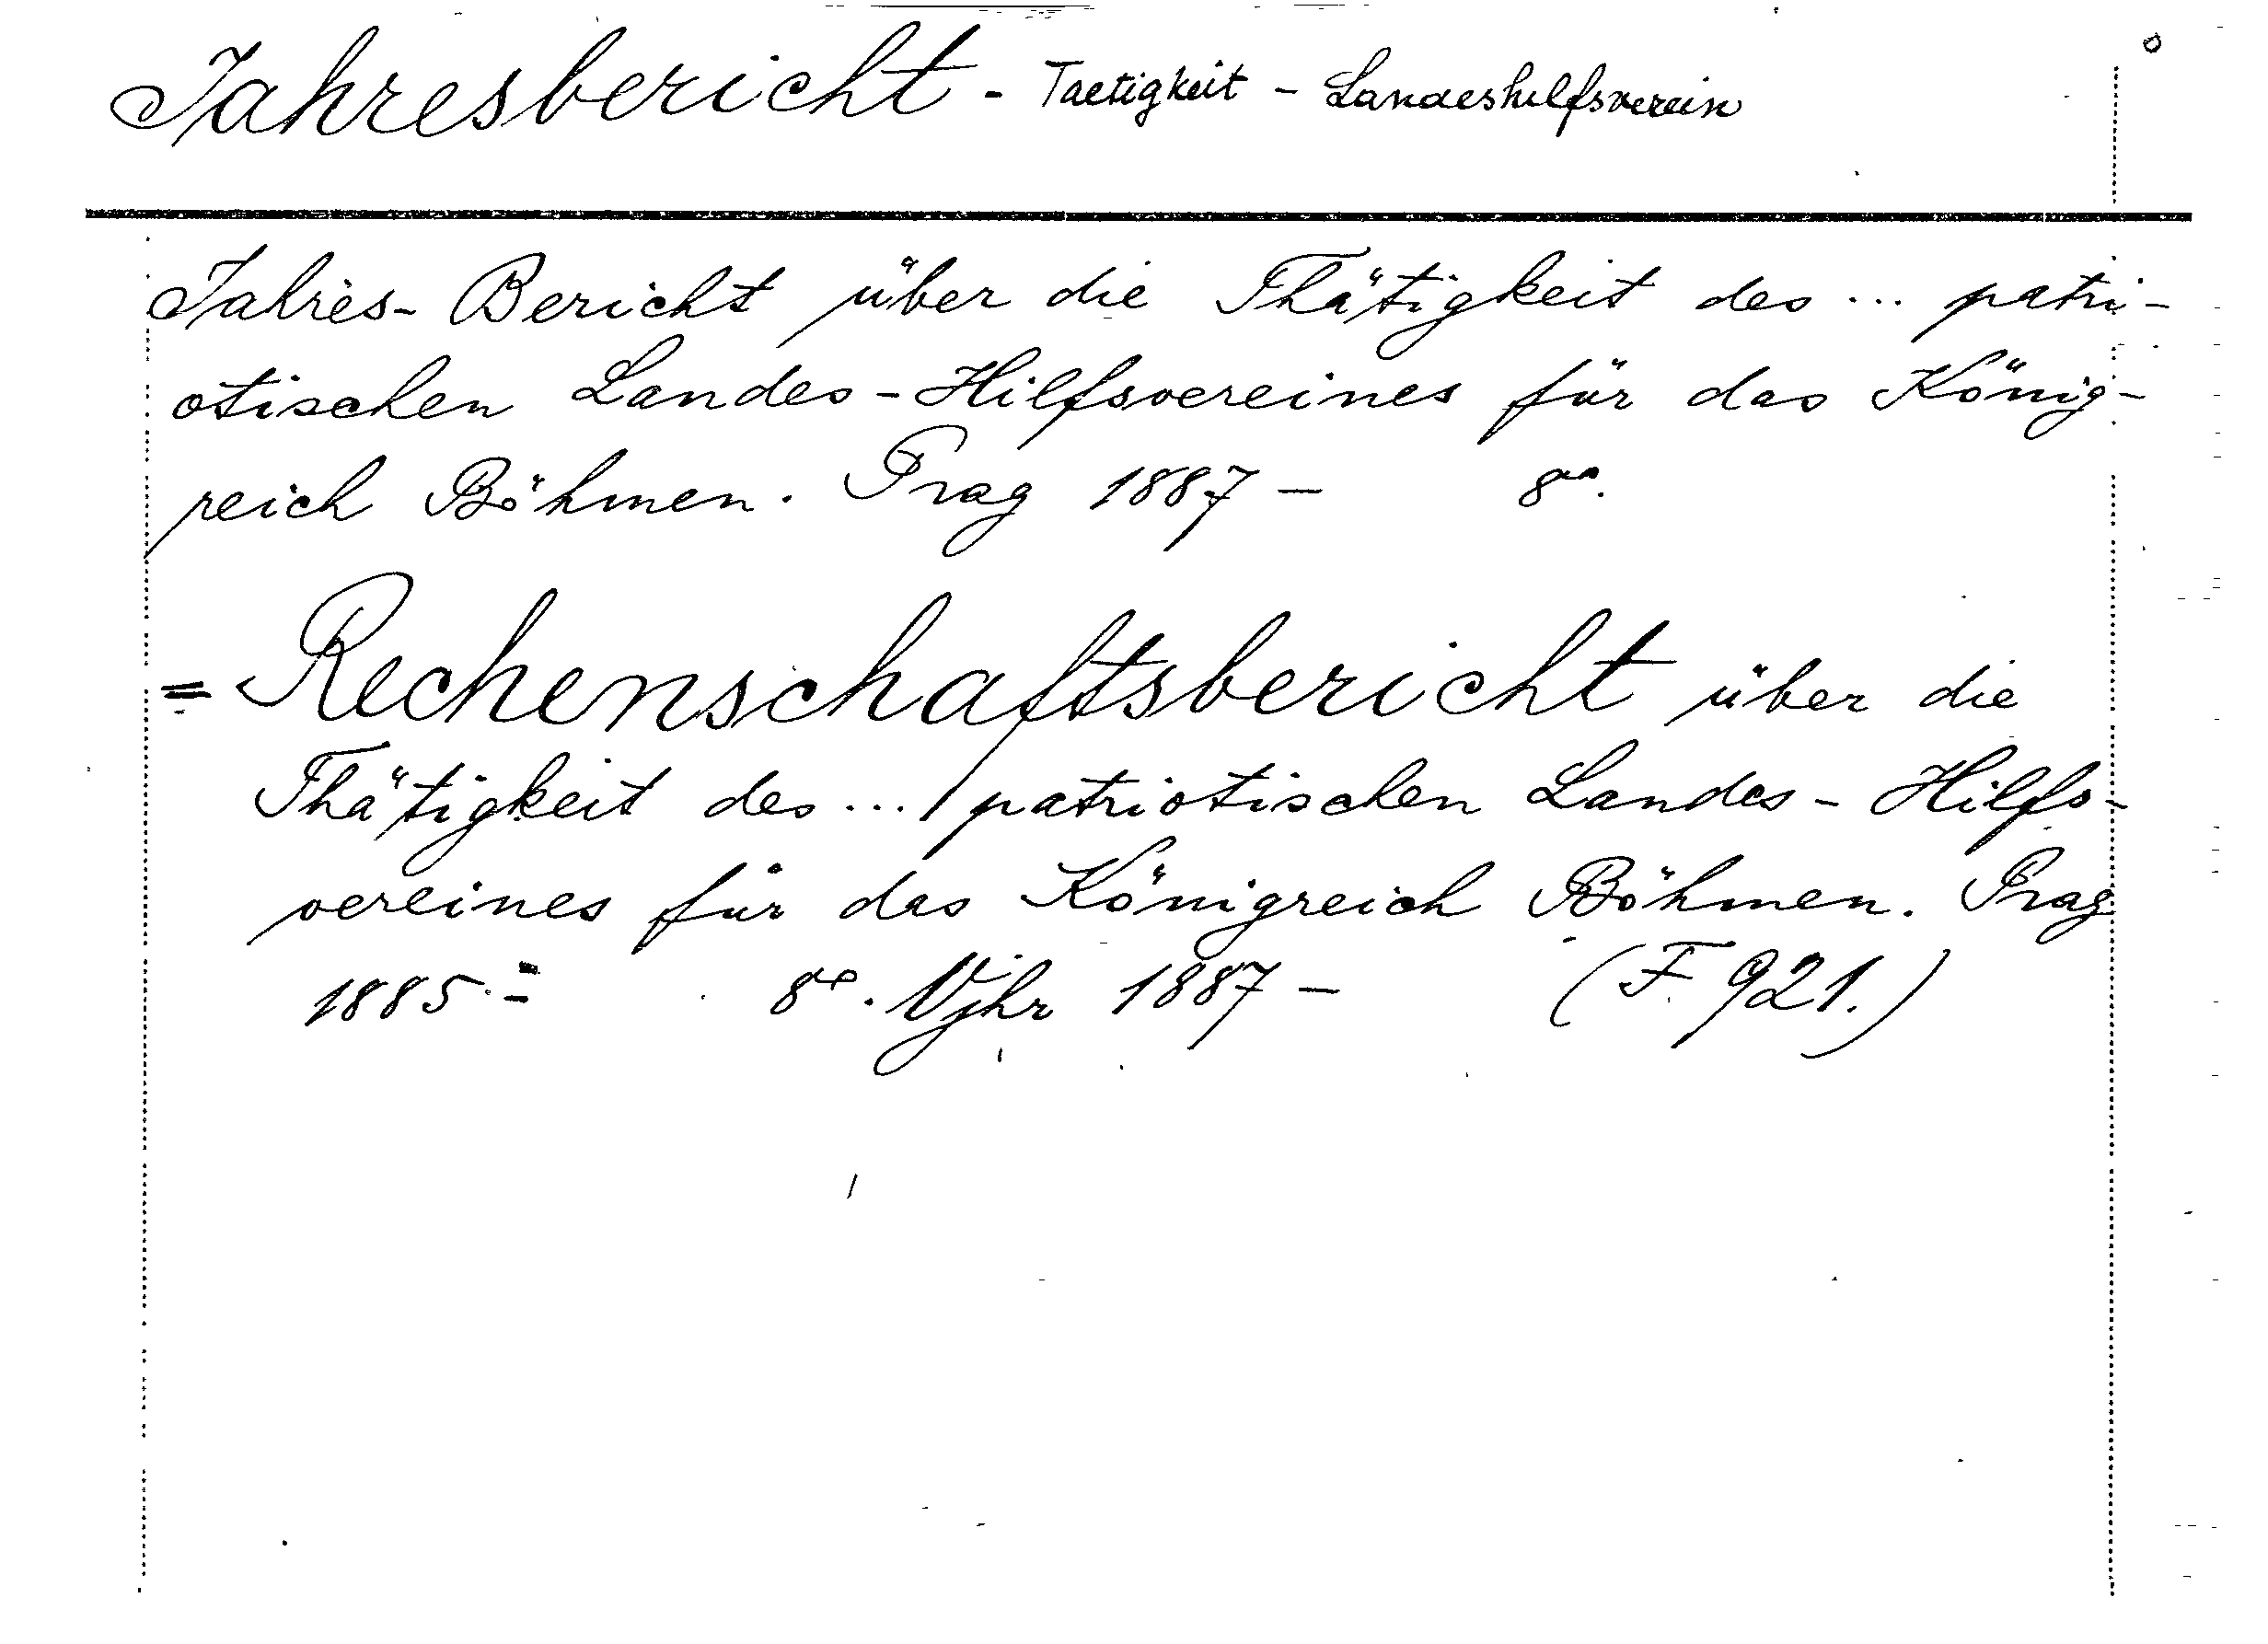 Jahresbericht - Taetigkeit - Landeshilfsverein
Jahres-Bericht über die Thätigkeit des ... patri-
otischen Landes-Hilfsvereines für das König-
reich Böhmen. Prag 1887 - 8°.
= Rechenschaftsbericht über die
Thätigkeit des ... patriotischen Landes-Hilfs-
vereines für das Königreich Böhmen. Prag
1885 - 8°. Vjhr 1887 - (F. 921.)